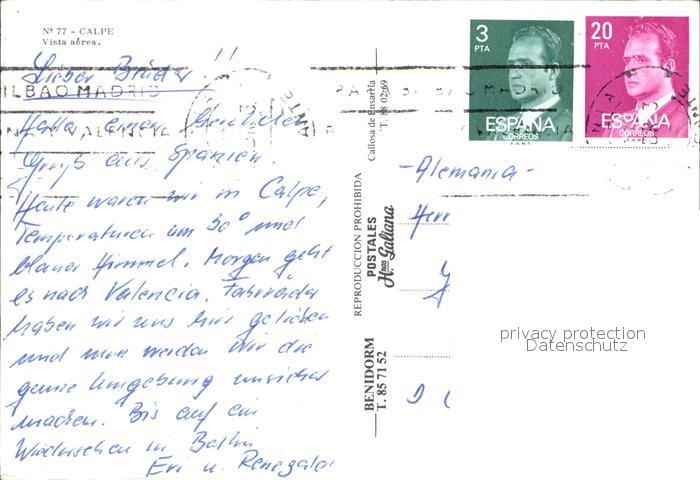 Nº 77 – CALPE
Vista aérea.
Lieber Bruder!!
BILBAO MADRID
VALENCIA
Hallo einen herzlichen
Gruß aus Spanien.
Heute waren wir in Calpe,
Temperaturen um 30° und
blauer Himmel. Morgen geht
es nach Valencia. Fahrräder
haben wir uns hier geliehen
und nun werden wir die
ganze Umgebung unsicher
machen. Bis auf ein
Wiedersehen in Berlin
Evi u.
Callosa de Ensarriá
T. 88 02 69
REPRODUCCION PROHIBIDA
POSTALES
Hnos Galiana
BENIDORM
T. 85 71 52
3
PTA
ESPAÑA
CORREOS
20
PTA
ESPAÑA
CORREOS
-Alemania-
Herr
D
privacy protection
Datenschutz